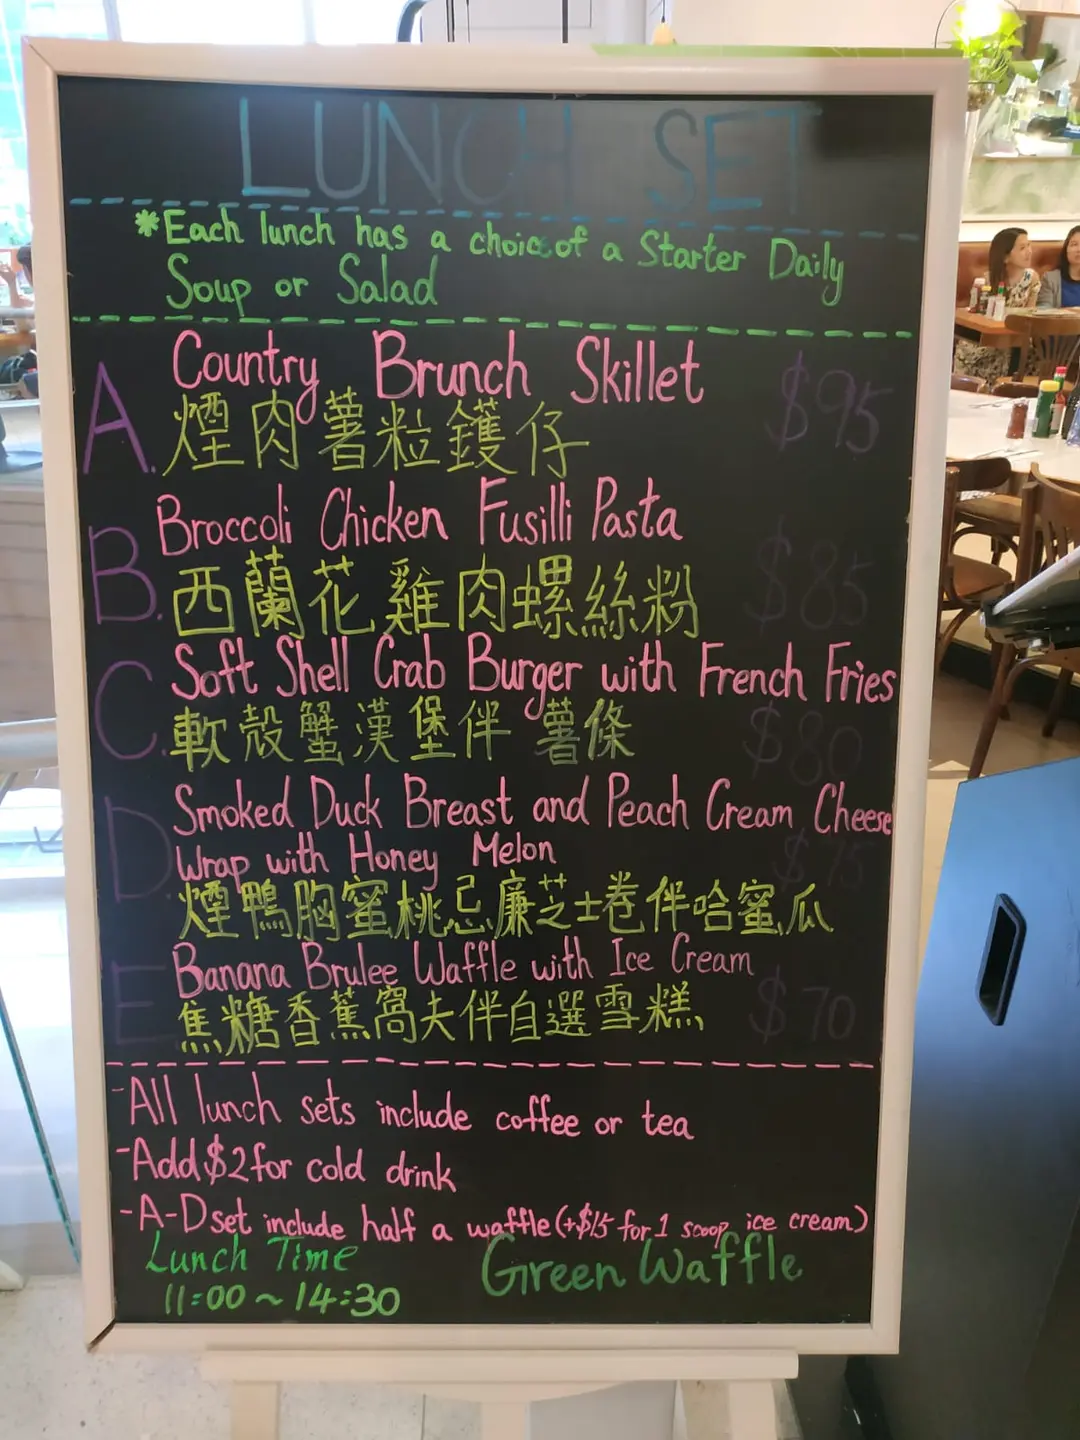 LUNCH SET
*Each lunch has a choice of a Starter Daily
Soup or Salad
A. Country Brunch Skillet $95
煙肉薯粒鑊仔
B. Broccoli Chicken Fusilli Pasta $85
西蘭花雞肉螺絲粉
C. Soft Shell Crab Burger with French Fries
軟殼蟹漢堡伴薯條 $80
D. Smoked Duck Breast and Peach Cream Cheese
Wrap with Honey Melon $75
煙鴨胸蜜桃忌廉芝士卷伴哈蜜瓜
E. Banana Brulee Waffle with Ice Cream
焦糖香蕉窩夫伴自選雪糕 $70
-All lunch sets include coffee or tea
-Add $2 for cold drink
-A-D set include half a waffle (+$15 for 1 scoop ice cream)
Lunch Time Green Waffle
11:00~14:30